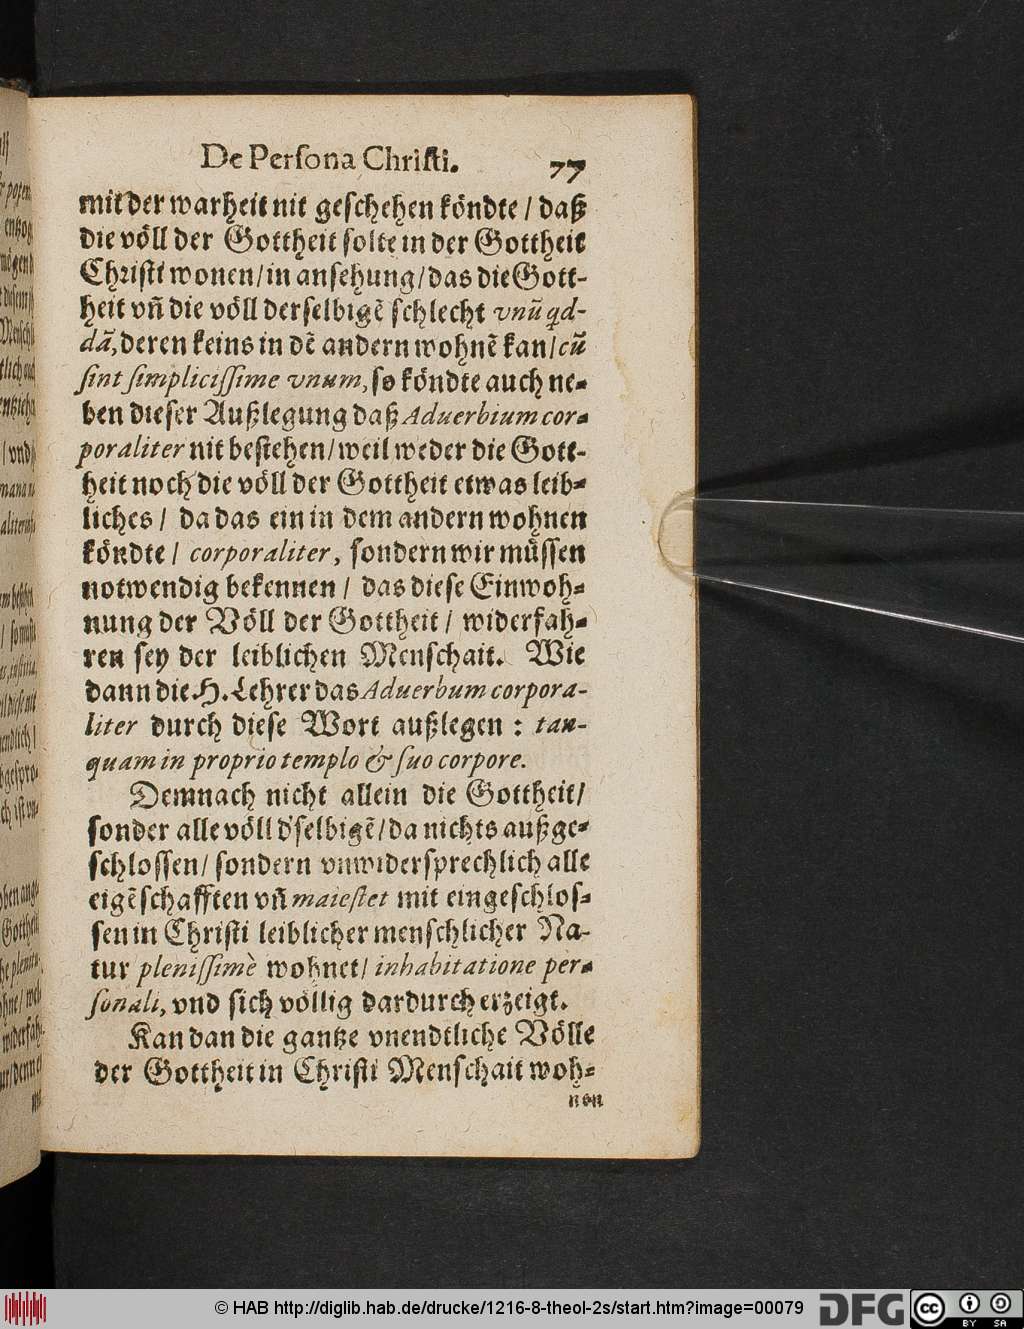 De Persona Christi. 77
mit der warheit nit geschehen köndte / daß
die völl der Gottheit solte in der Gottheit
Christi wonen / in ansehung / das die Gott-
heit vn̄ die völl derselbigē schlecht vnū qd-
dā, deren keins in dē andern wohnē kan / cū
sint simplicissime vnum, so köndte auch ne-
ben dieser Außlegung daß Aduerbium cor-
poraliter nit bestehen / weil weder die Gott-
heit noch die völl der Gottheit etwas leib-
liches / da das ein in dem andern wohnen
köndte / corporaliter, sondern wir müssen
notwendig bekennen / das diese Einwoh-
nung der Völl der Gottheit / widerfah-
ren sey der leiblichen Menschait. Wie
dann die H. Lehrer das Aduerbum corpora-
liter durch diese Wort außlegen : tan-
quam in proprio templo & suo corpore.
Demnach nicht allein die Gottheit /
sonder alle völl d'selbigē / da nichts außge-
schlossen / sondern vnwidersprechlich alle
eigēschafften vn̄ maiestet mit eingeschlos-
sen in Christi leiblicher menschlicher Na-
tur plenissimè wohnet / inhabitatione per-
sonali, vnd sich völlig dardurch erzeigt.
Kan dan die gantze vnendtliche Völle
der Gottheit in Christi Menschait woh-
nen
© HAB http://diglib.hab.de/drucke/1216-8-theol-2s/start.htm?image=00079
DFG
cc BY SA